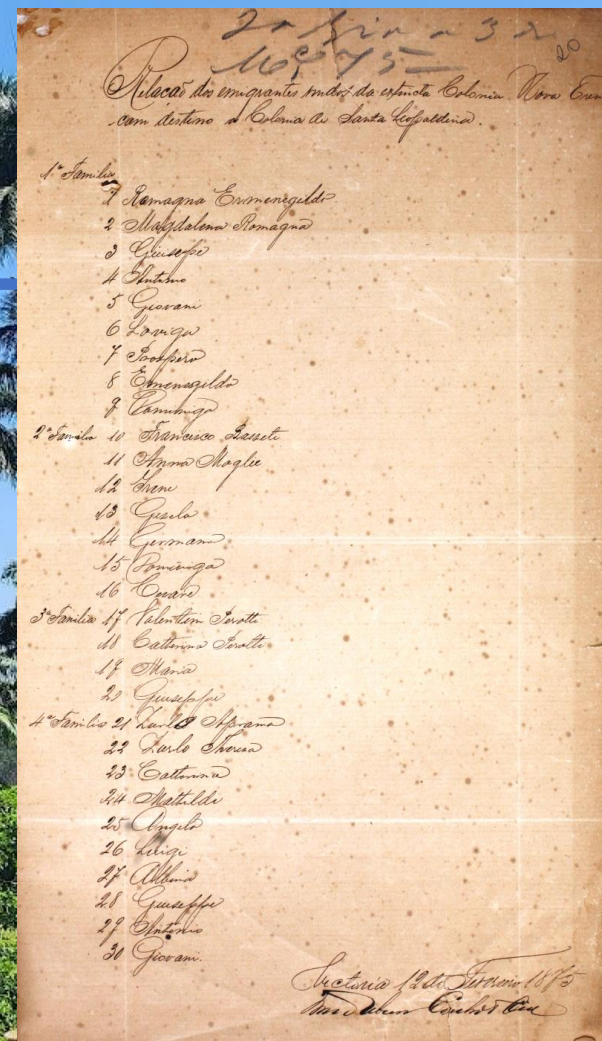 20
1675
Relacaõ dos emigrantes vindos da extincta Colonia Nova Tren
com destino a Colonia de Santa Leopoldina.
1ª Familia
1 Romagna Ermenegildo
2 Magdalena Romagna
3 Giuseppe
4 Antonio
5 Giovani
6 Loviga
7 Prospero
8 Ermenegildo
9 Dominiga
2ª Familia 10 Francisco Basseti
11 Anna Moglie
12 Irene
13 Gisela
14 Germana
15 Dominiga
16 Cesare
3ª Familia 17 Valentim Perotti
18 Catterina Perotti
19 Maria
20 Giuseppe
4ª Familia 21 Zurlo Abramo
22 Zurlo Theresa
23 Catterina
24 Mathilde
25 Angelo
26 Luigi
27 Albina
28 Giuseppe
29 Antonio
30 Giovani.
Victoria 12 de Fevereiro 1875